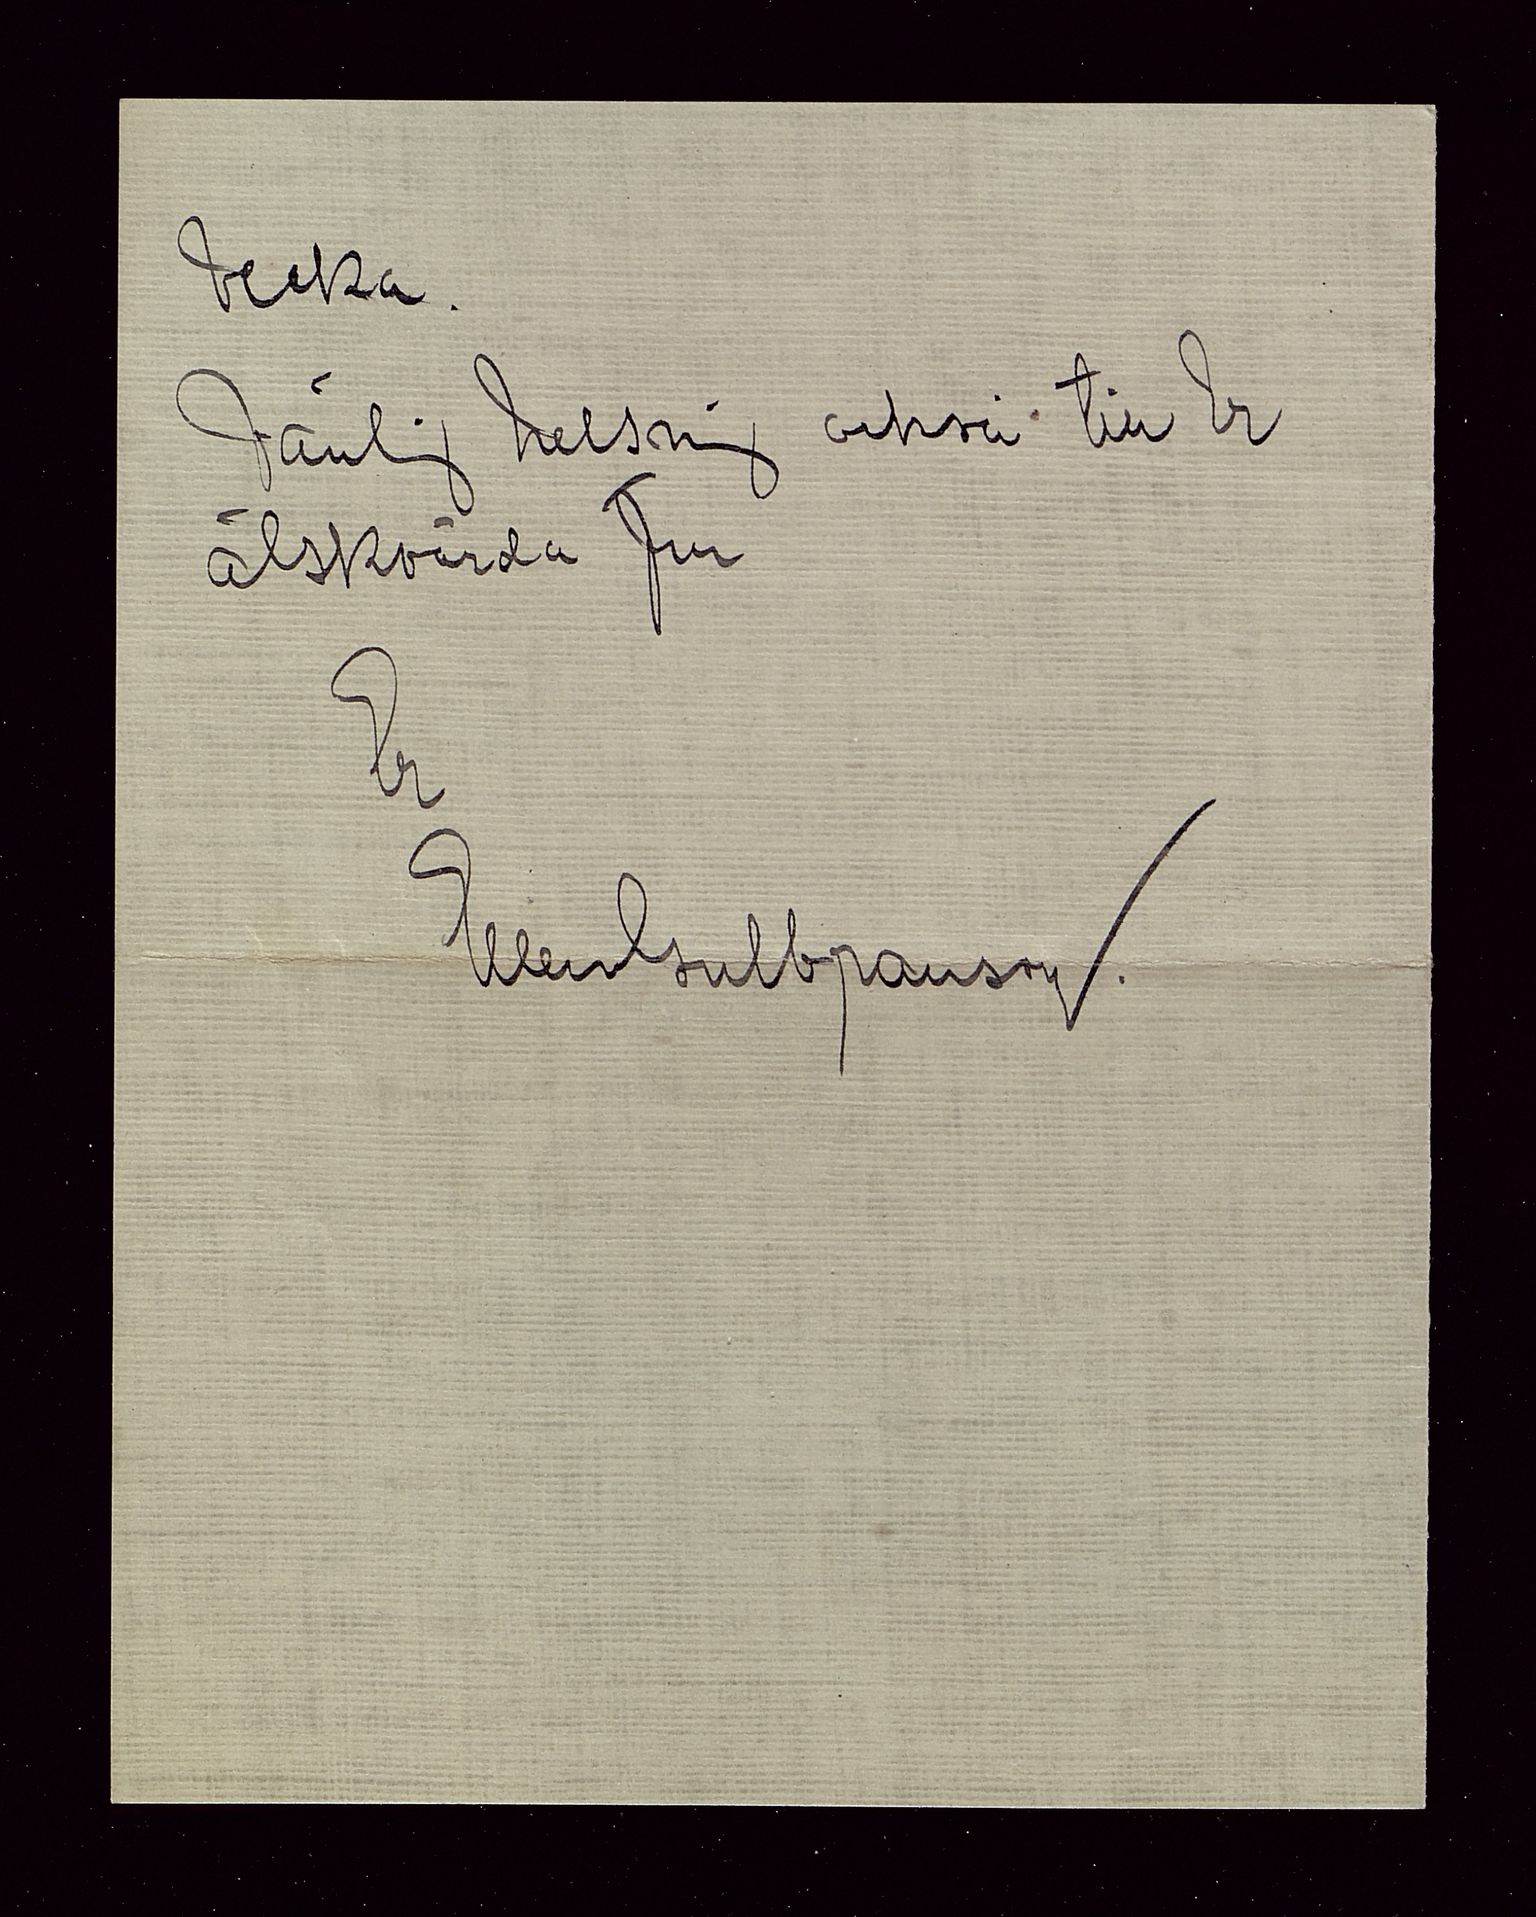 vecka.
Vänlig helsning också till Er
älskvärda Fru
Er
Ellen Gulbranson.